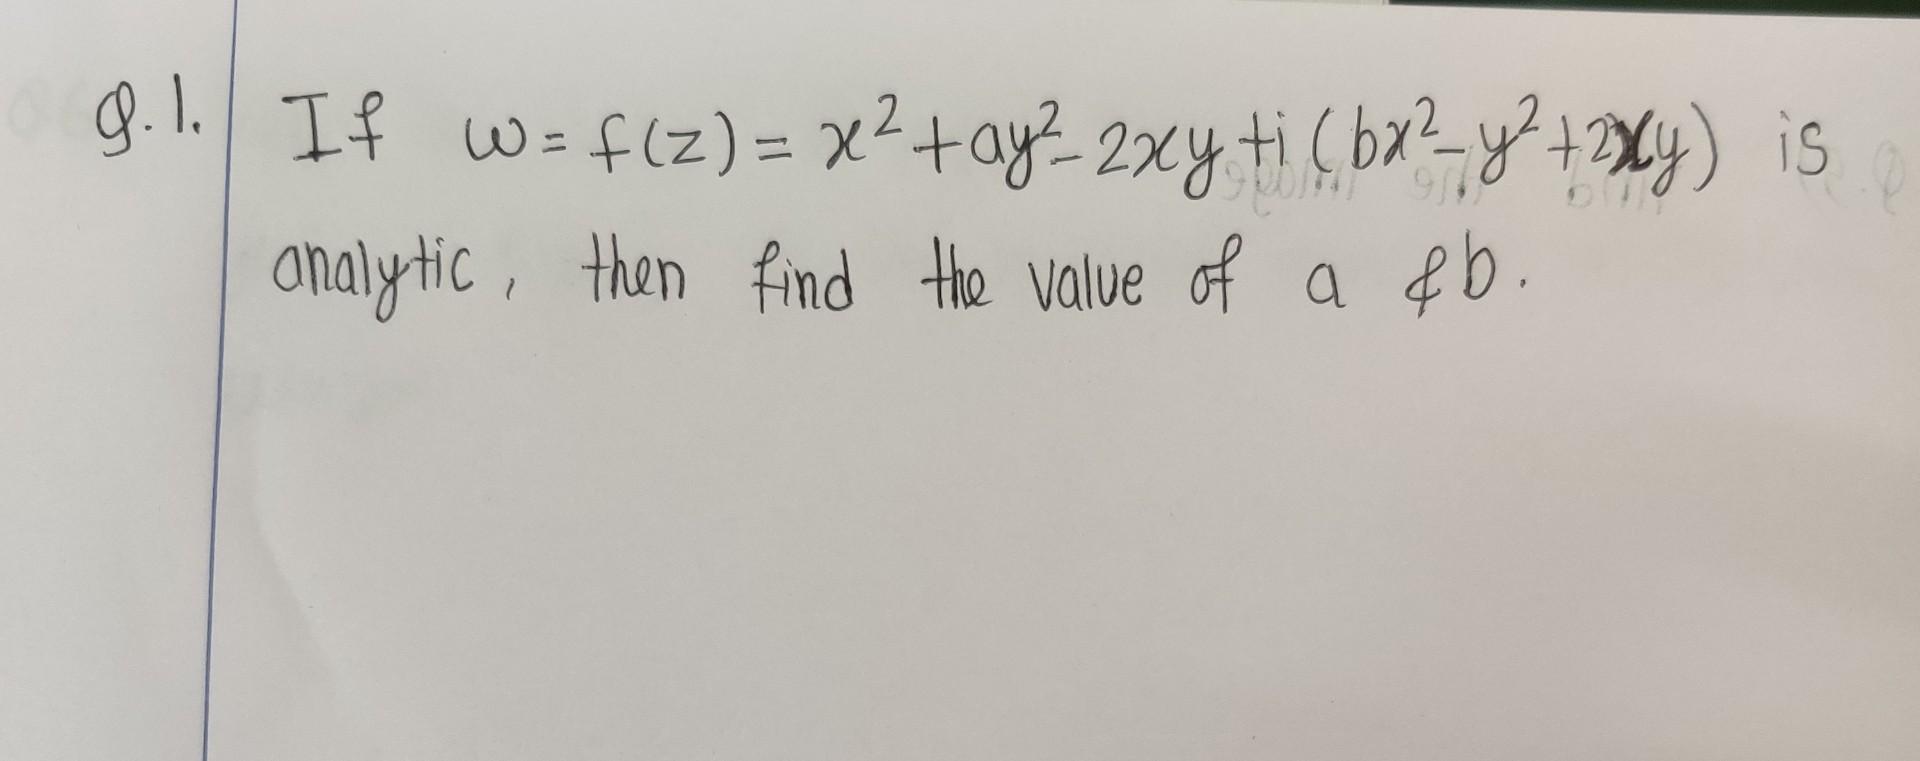 Q.1. If w = f(z) = x² + ay² - 2xy + i (bx² - y² + 2xy) is
analytic, then find the value of a & b.